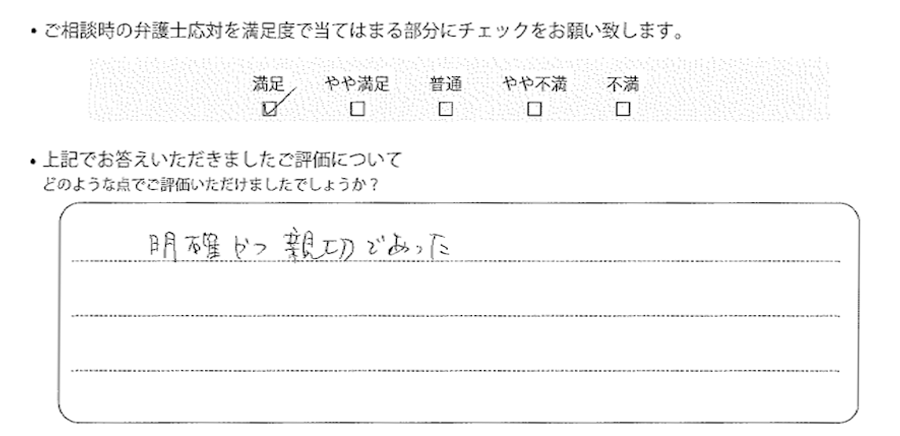 ・ご相談時の弁護士応対を満足度で当てはまる部分にチェックをお願い致します。
満足 やや満足 普通 やや不満 不満
☑ ☐ ☐ ☐ ☐
・上記でお答えいただきましたご評価について
どのような点でご評価いただけましたでしょうか?
明確かつ親切であった